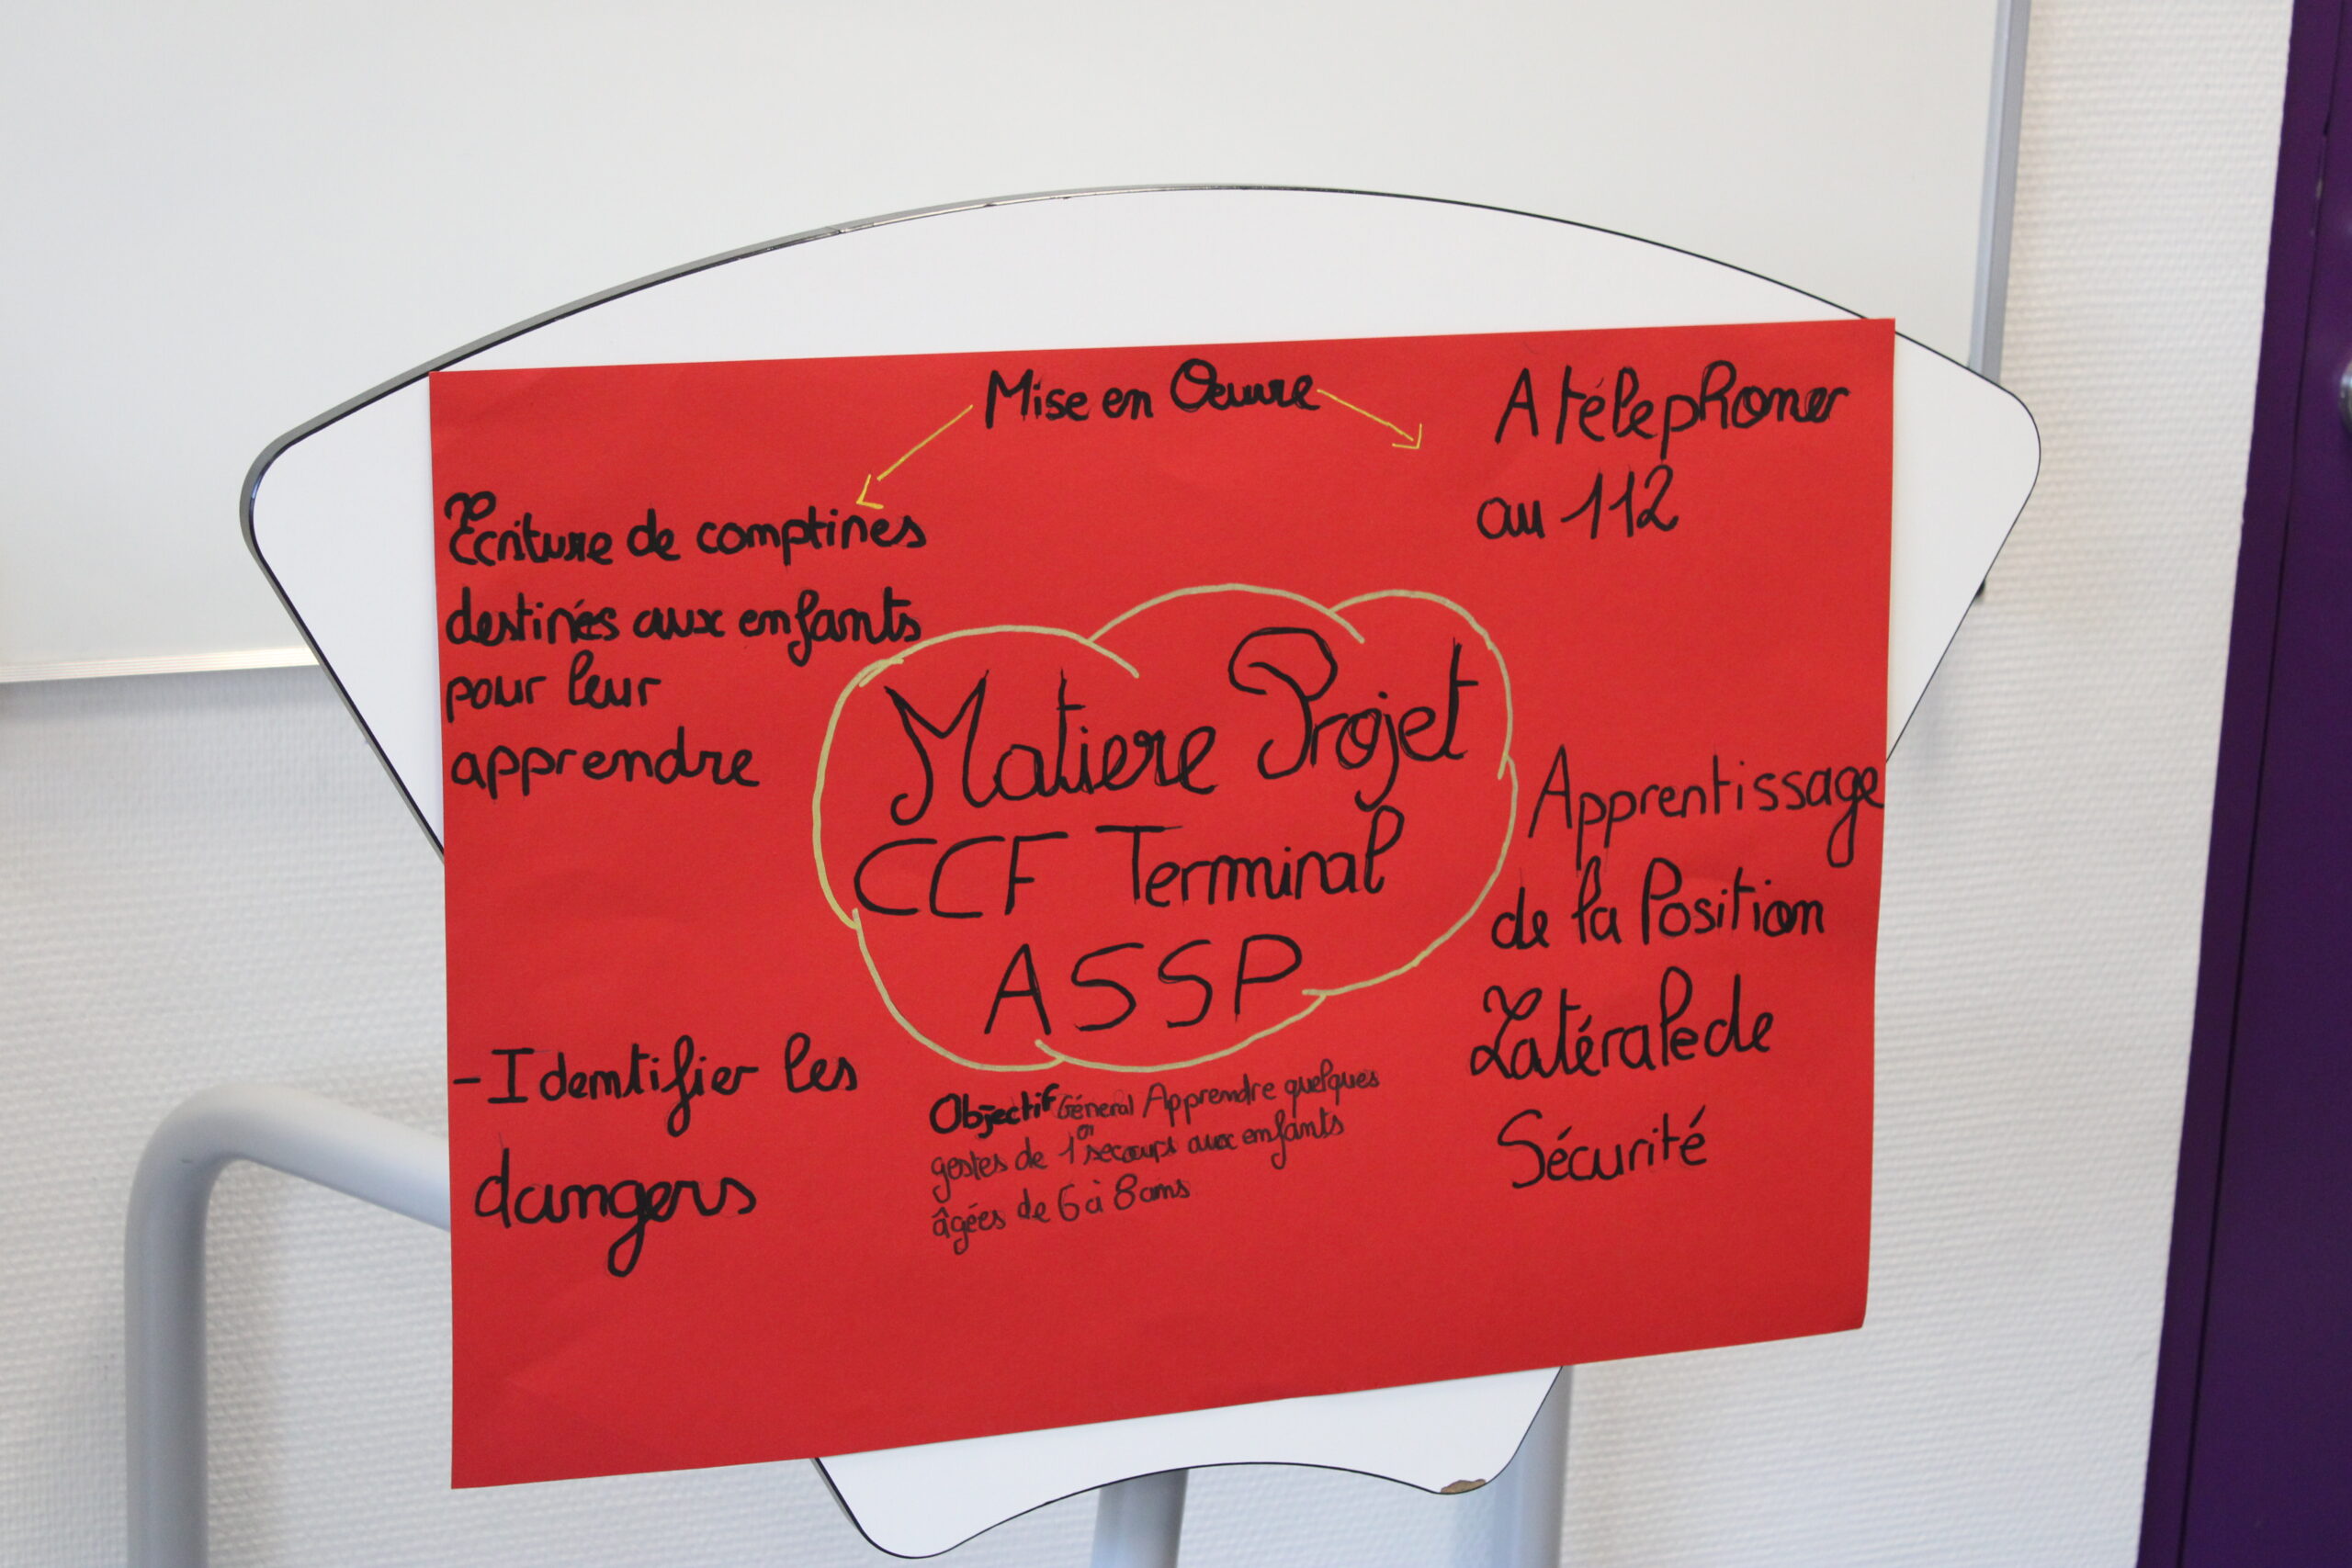 Mise en Oeuvre
Ecriture de comptines
destinés aux enfants
pour leur
apprendre
A téléphoner
au 112
Matiere Projet
CCF Terminal
ASSP
Apprentissage
de la Position
Latérale de
Sécurité
-Identifier les
dangers
Objectif Géneral Apprendre quelques
gestes de 1er secours aux enfants
âgées de 6 à 8 ans